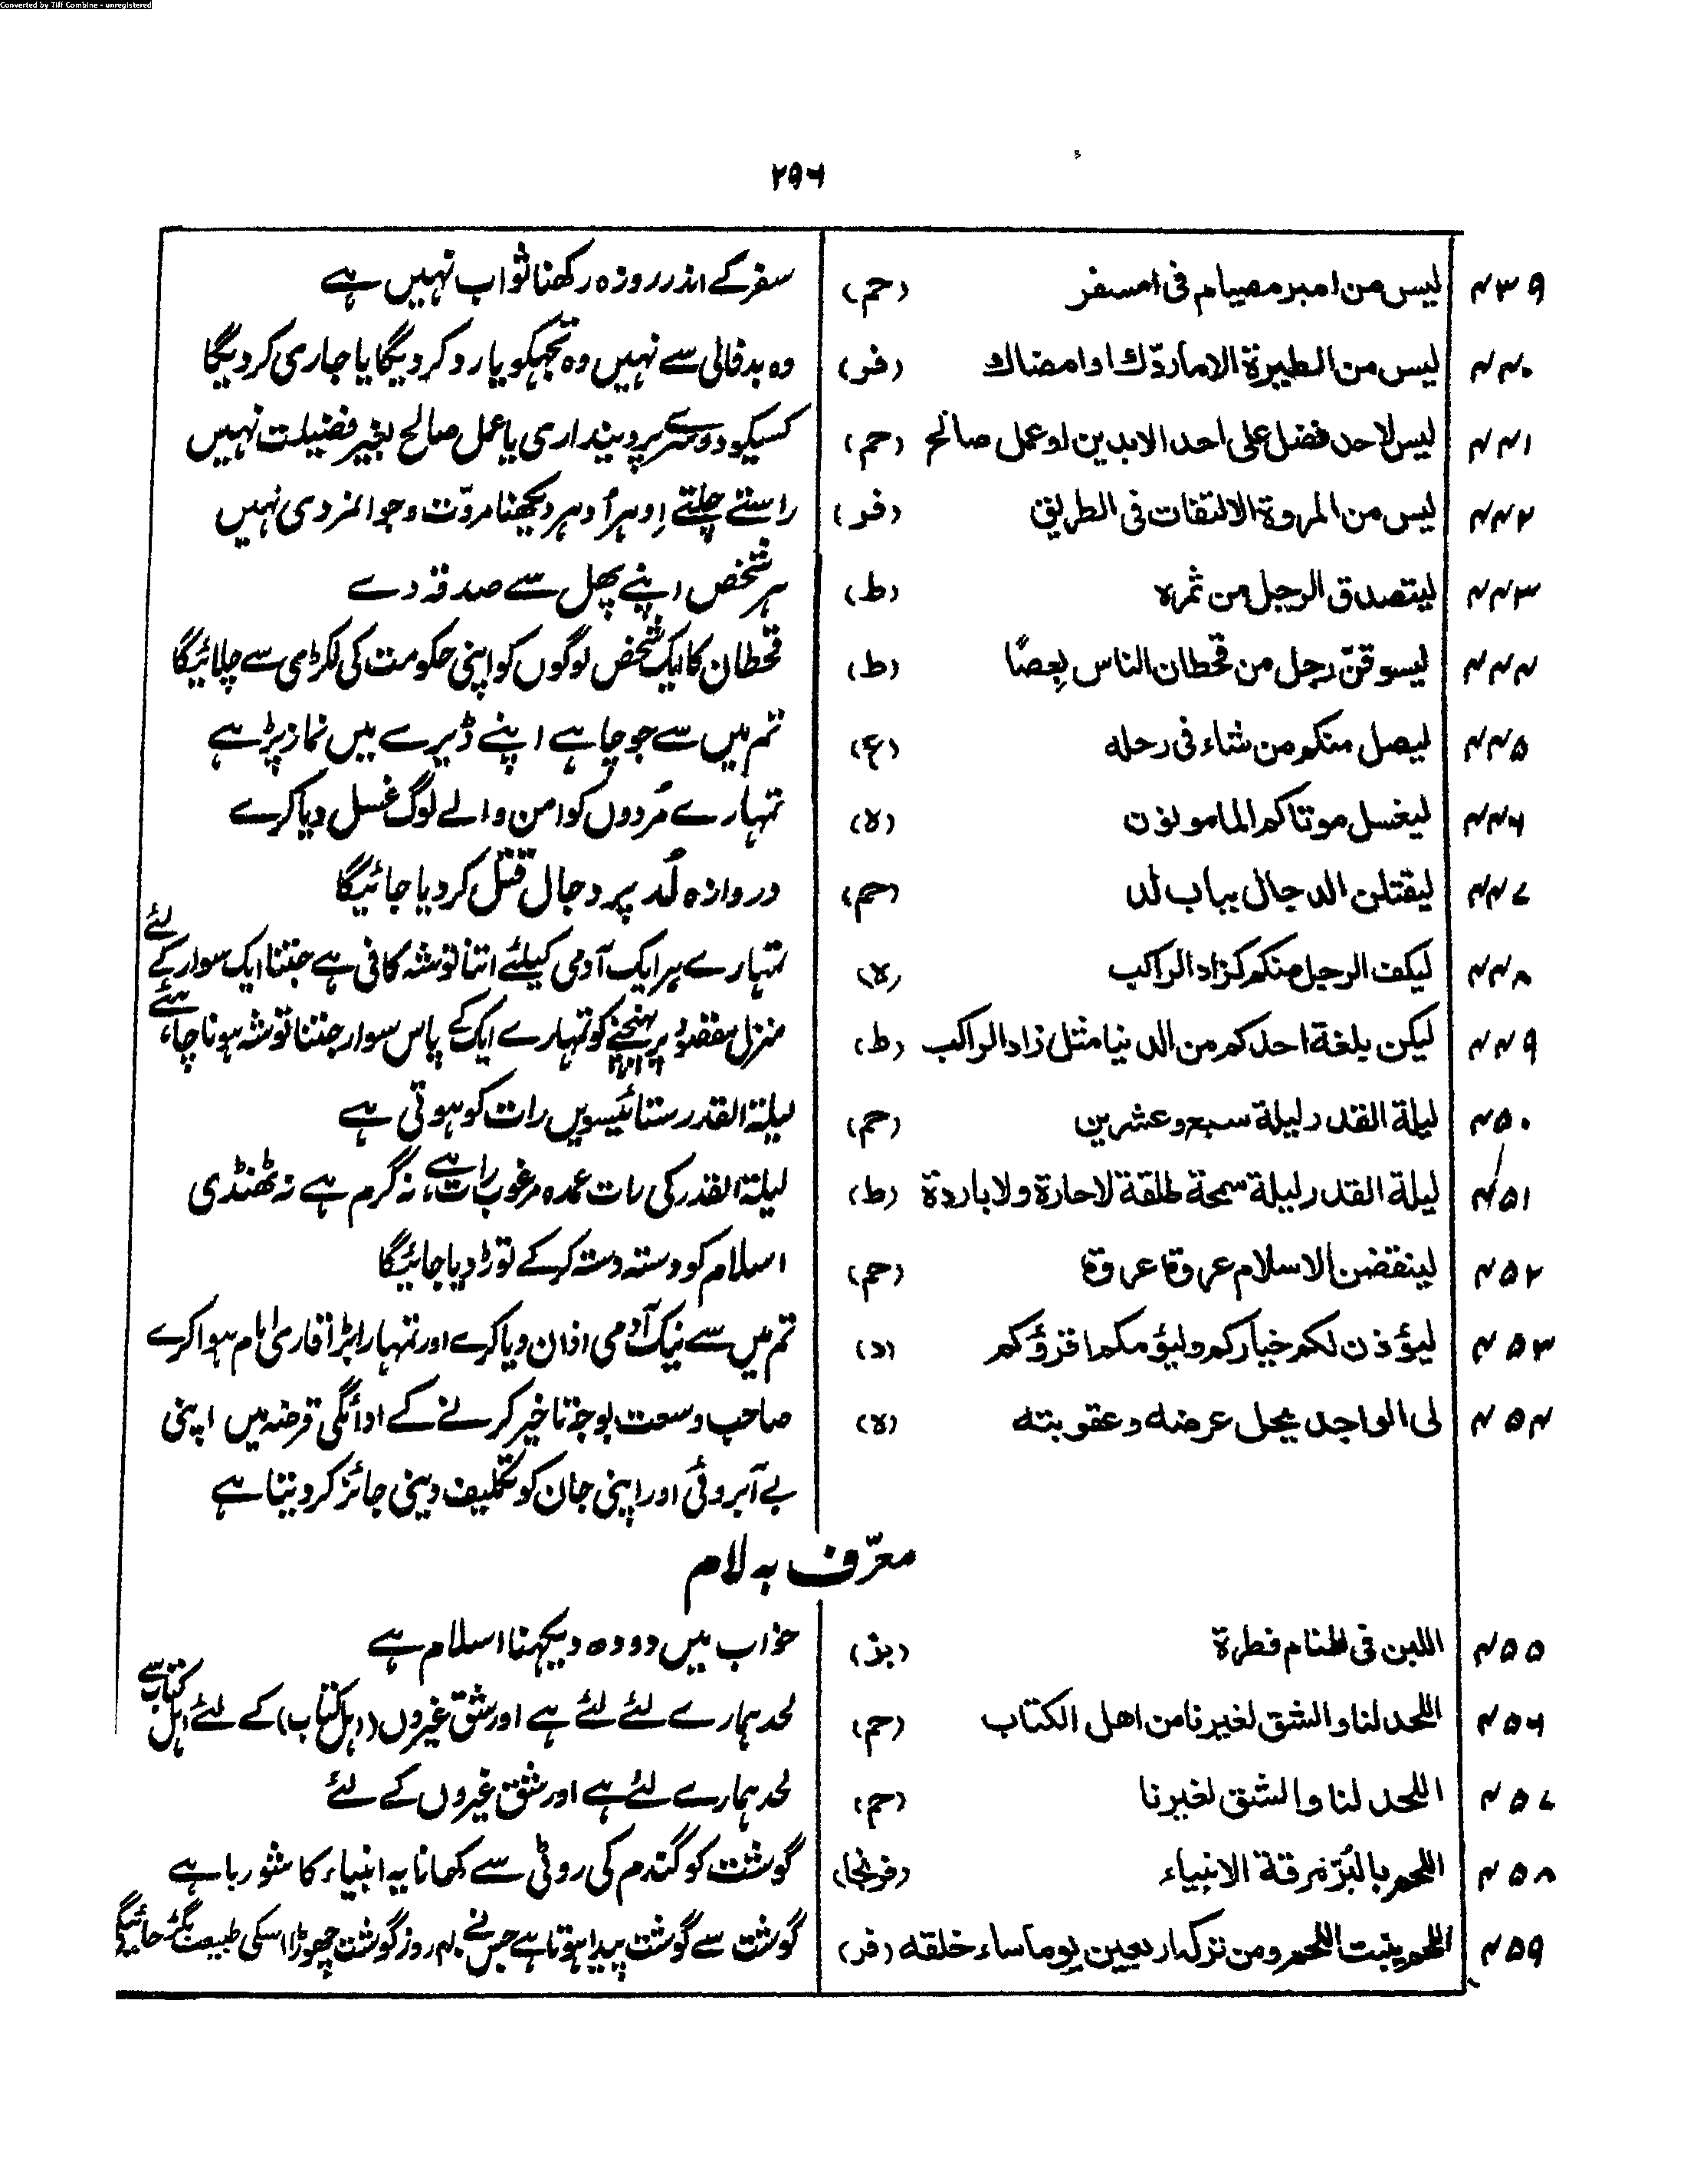 Converted by Tiff Combine - unregistered
۲۹۶
۴۳۹ لیس من امبر مصیام فی امسفر (حم) سفر کے اندر روزہ رکھنا ثواب نہیں ہے
۴۴۰ لیس من الطیرة الا ماردّك او امضاك (فر) وہ بدفالی سے نہیں وہ تجہکو یا رد کر دیگا یا جاری کر دیگا
۴۴۱ لیس لاحد فضل علی احد الا بدین او عمل صالح (حم) کسیکو دوسرے پر دینداری یا عمل صالح بغیر فضیلت نہیں
۴۴۲ لیس من المروة الالتفات فی الطریق (فر) راستے چلتے اِدہر اُدہر دیکھنا مروّت وجوانمردی نہیں
۴۴۳ لیتصدق الرجل من ثمره (ط) ہر شخص اپنے پھل سے صدقہ دے
۴۴۴ لیسوقنّ رجل من قحطان الناس بعصًا (ط) قحطان کا ایک شخص لوگوں کو اپنی حکومت کی لکڑی سے چلائیگا
۴۴۵ لیصل منکم من شاء فی رحله (ع) تم میں سے جو چاہے اپنے ڈیرے میں نماز پڑہے
۴۴۶ لیغسل موتاکم المامونون (لا) تمہارے مُردوں کو امن والے لوگ غسل دیا کرے
۴۴۷ لیقتلن الدجال بباب لد (حم) دروازہ لُد پر دجال قتل کر دیا جائیگا
۴۴۸ لیکف الرجل منکم کزاد الراکب (لا) تمہارے ہر ایک آدمی کیلئے اتنا توشہ کافی ہے جتنا ایک سوار کے لئے
۴۴۹ لیکن بلغة احدکم من الدنیا مثل زاد الراکب (ط) منزل مقصود پر پہنچنے کو تمہارے ایک کے پاس سوار جتنا توشہ ہونا چاہئے
۴۵۰ لیلة القدر لیلة سبع وعشرین (حم) لیلة القدر ستائیسویں رات کو ہوتی ہے
۴۵۱ لیلة القدر لیلة سمحة طلقة لاحارة ولاباردة (ط) لیلة القدر کی رات عمدہ مرغوب رات ہے، نہ گرم ہے نہ ٹھنڈی
۴۵۲ لینقضن الاسلام عروة عروة (حم) اسلام کو دستہ دستہ کرکے توڑ دیا جائیگا
۴۵۳ لیؤذن لکم خیارکم ولیؤمکم اقرؤکم (د) تم میں سے نیک آدمی اذان دیا کرے اور تمہارا بڑا قاری امام ہوا کرے
۴۵۴ لی الواجد یحل عرضه وعقوبته (لا) صاحب وسعت بوجہ تاخیر کرنے کے ادائگی قرضہ میں اپنی
بے آبروئی اور اپنی جان کو تکلیف دینی جائز کر دیتا ہے
معرّف بہ لام
۴۵۵ اللبن فی المنام فطرة (بز) خواب میں دودہ دیکہنا اسلام ہے
۴۵۶ اللحد لنا والشق لغیرنا من اهل الکتاب (حم) لحد ہمارے لئے لئے ہے اور شق غیروں (اہل کتاب) کے لئے اہل کتاب سے
۴۵۷ اللحد لنا والشق لغیرنا (حم) لحد ہمارے لئے ہے اور شق غیروں کے لئے
۴۵۸ اللحم بالبُرّ مرقة الانبیاء گوشت کو گندم کی روٹی سے کھانا یہ انبیاء کا شوربا ہے
۴۵۹ اللحم ینبت اللحم ومن ترکه اربعین یوما ساء خلقه (فر) گوشت سے گوشت پیدا ہوتا ہے جس نے ۴۰ روز گوشت چھوڑا اسکی طبیعت بگڑ جائیگی